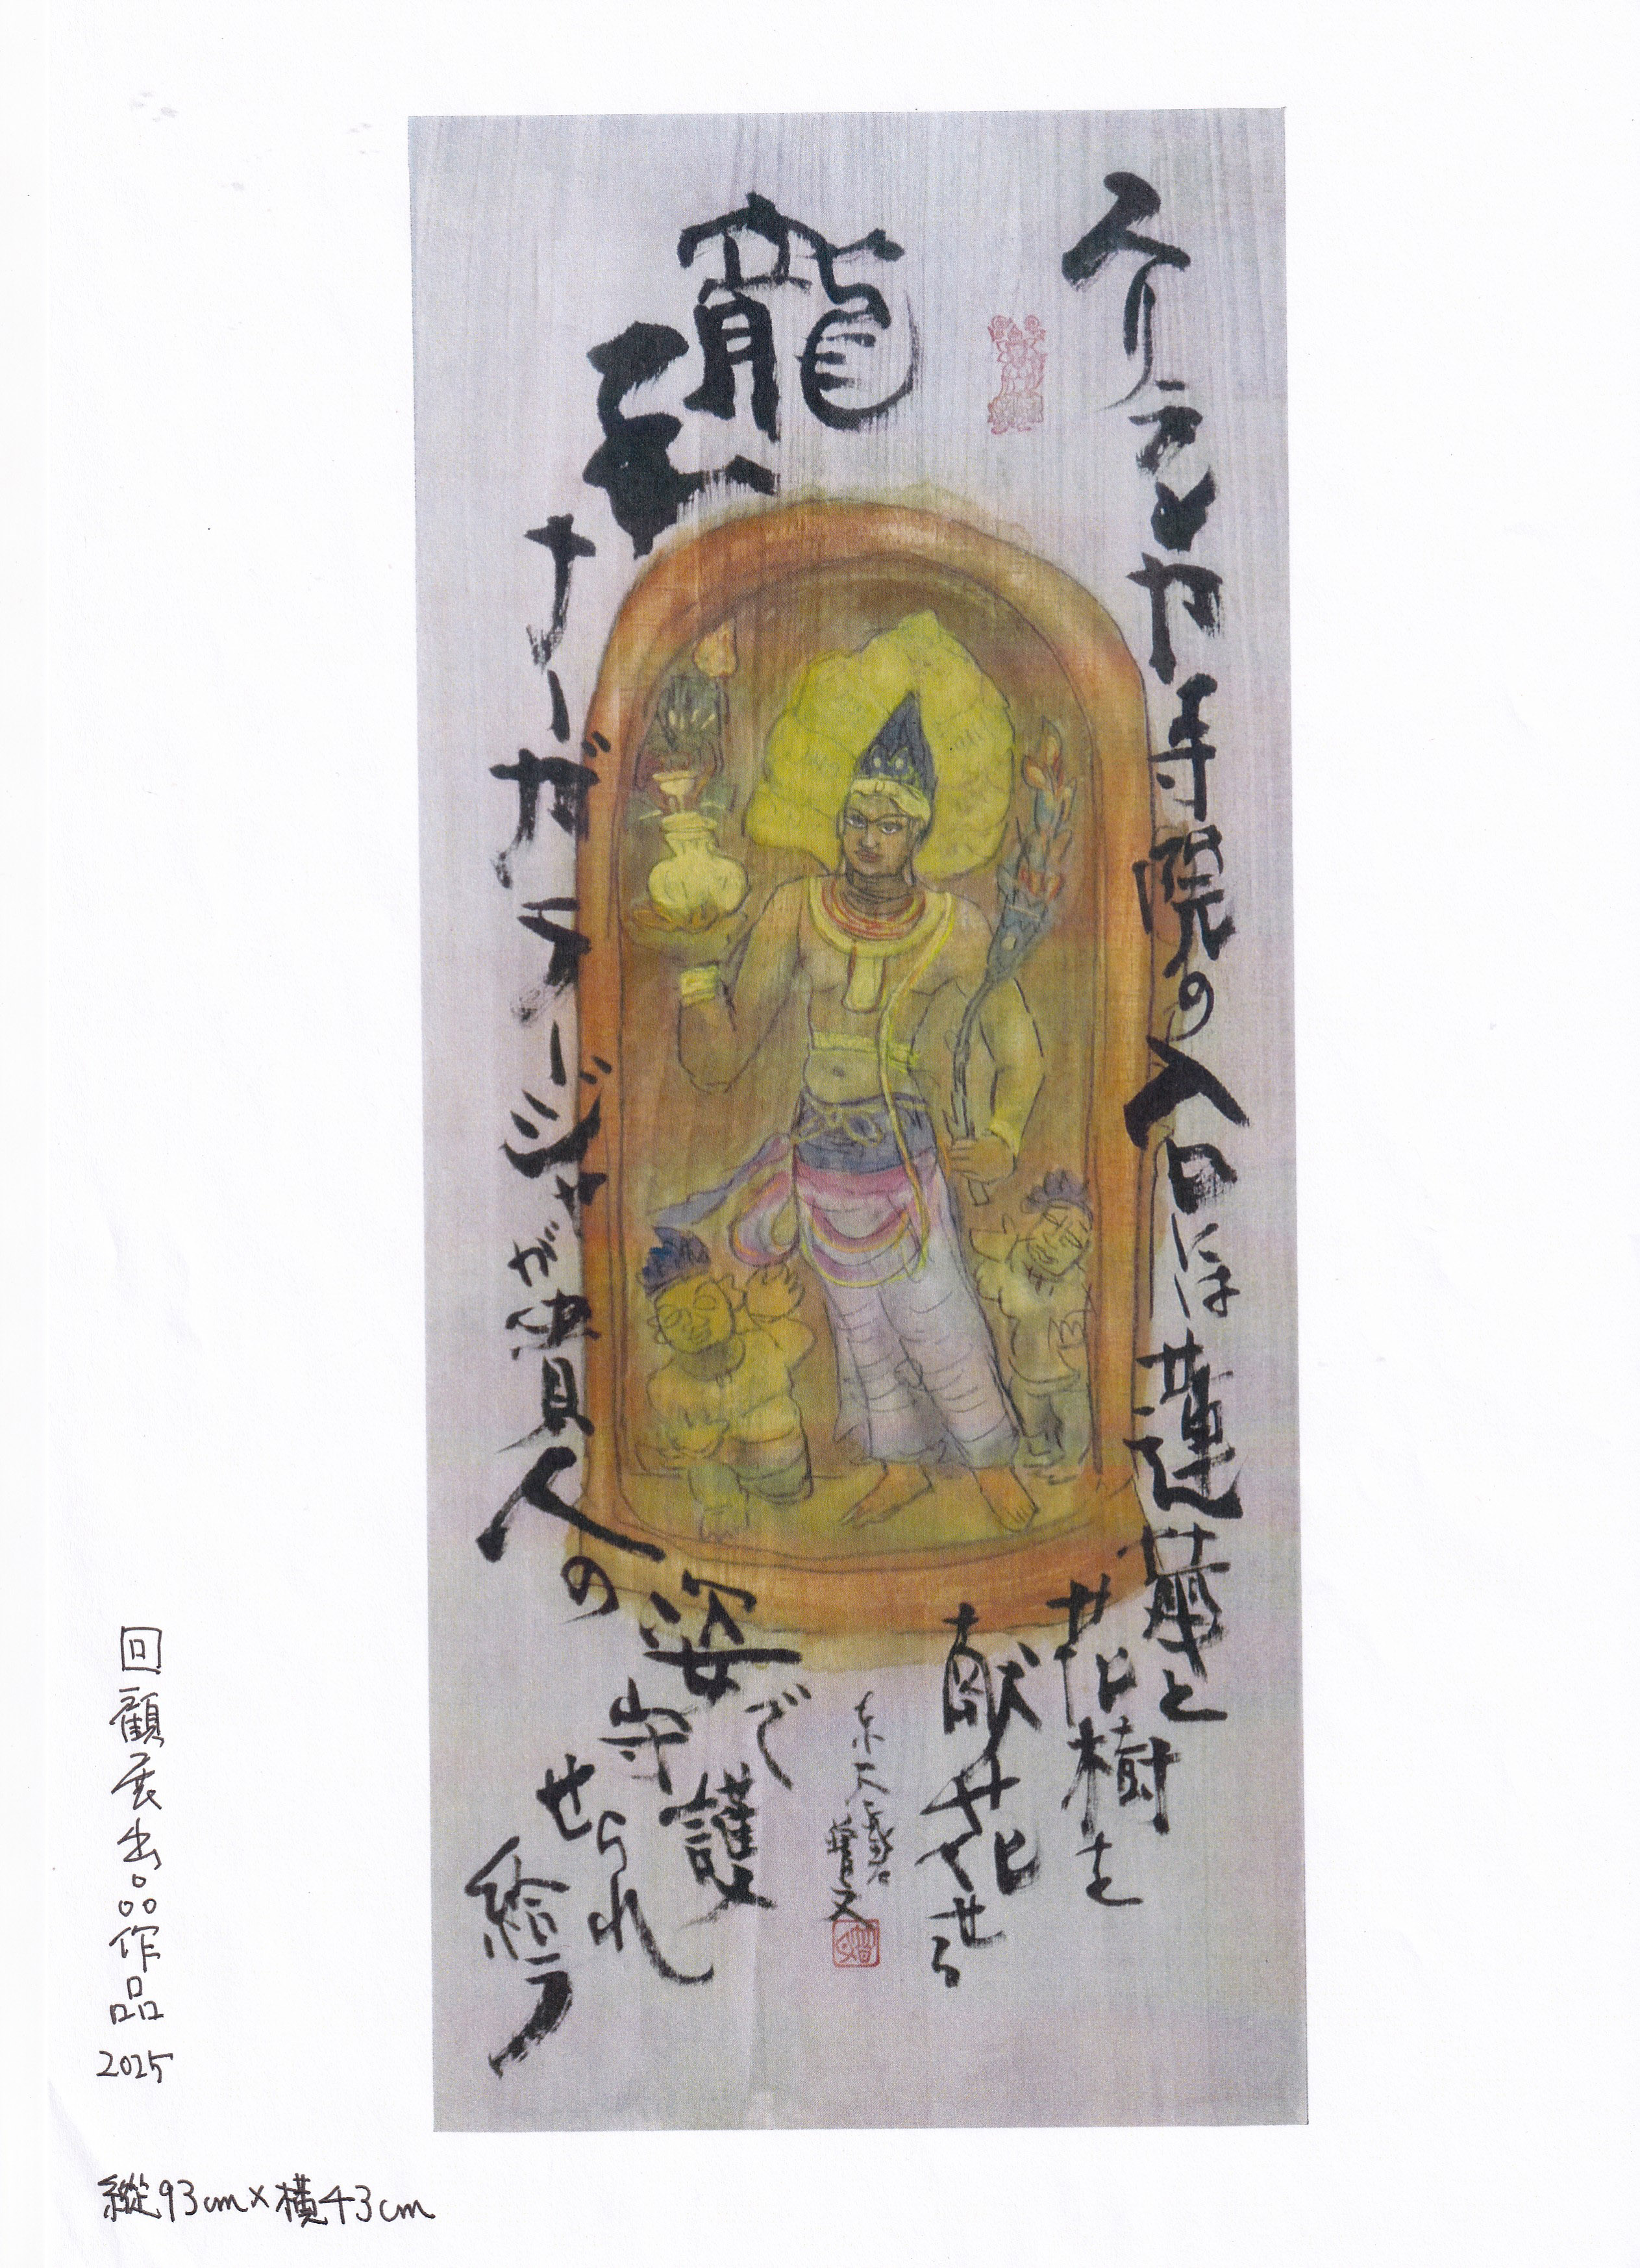 スリランカ寺院の入口には蓮華と
花樹を
献花させる
龍王
ナーガラージャが貴人の
姿で
守護
せられ
給う
回顧展出品作品
2025
縦93cm×横43cm